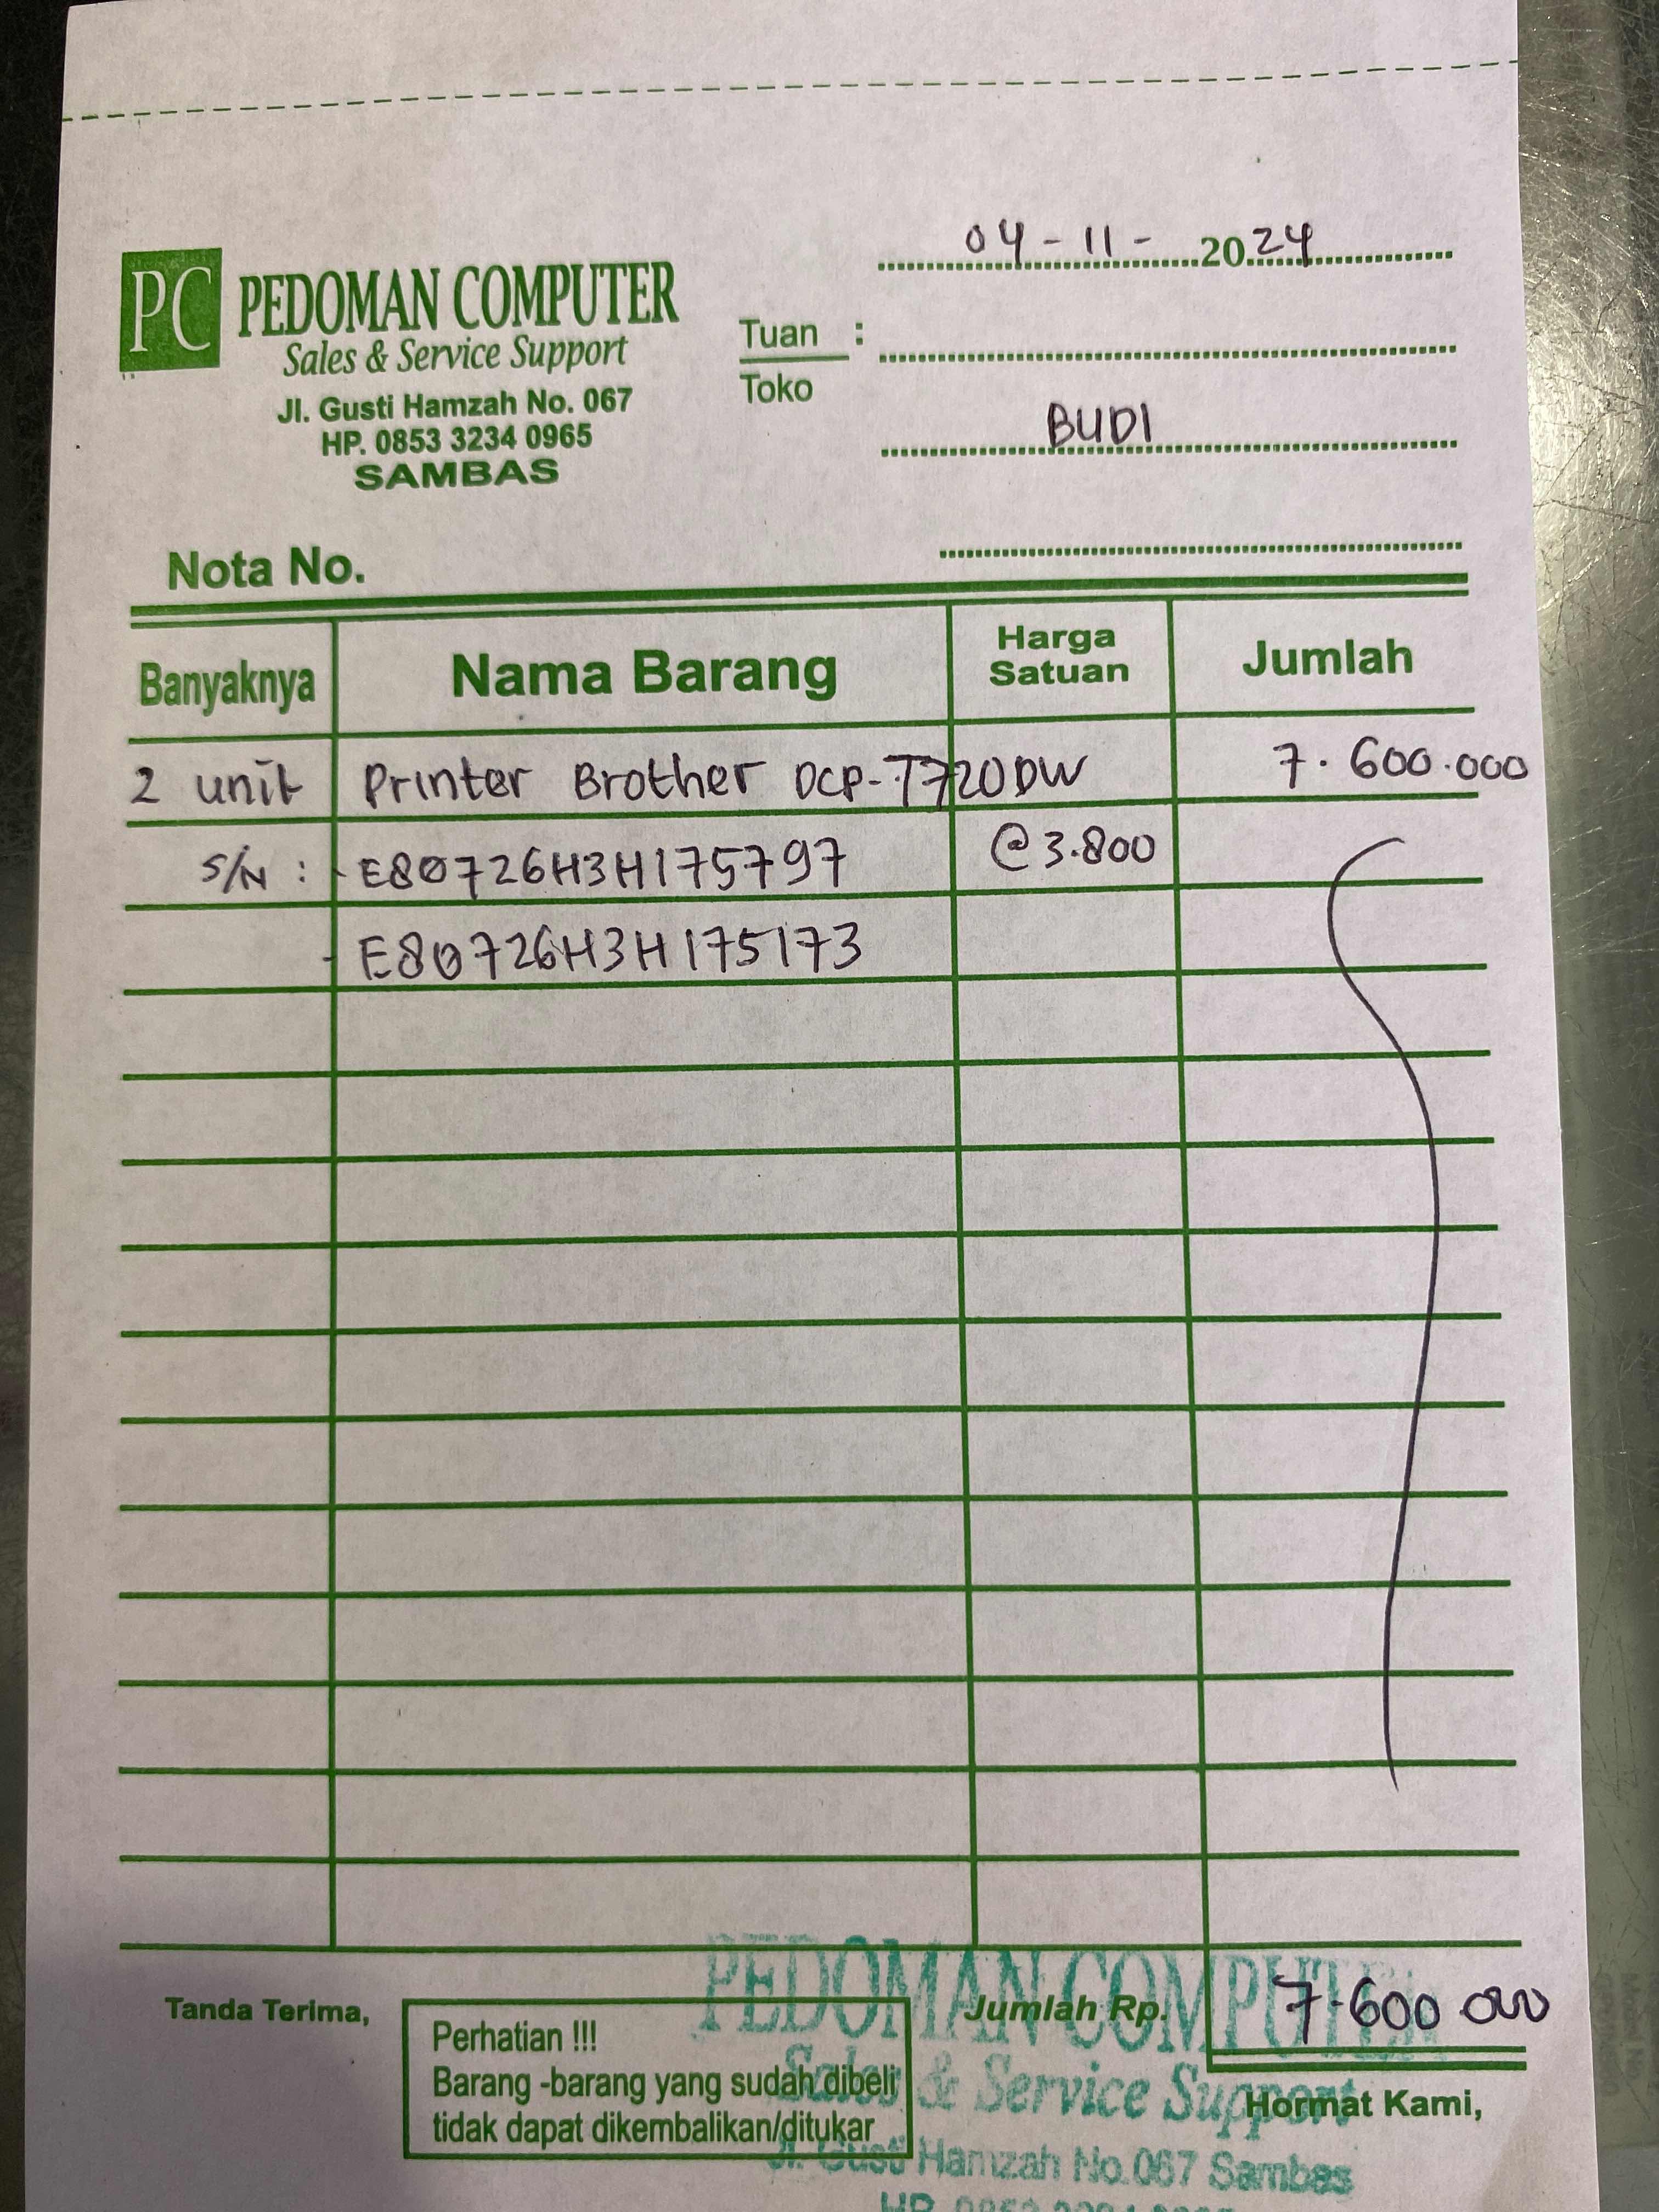 04 - 11 - 2024
PC PEDOMAN COMPUTER
Sales & Service Support
Jl. Gusti Hamzah No. 067
HP. 0853 3234 0965
SAMBAS
Tuan :
Toko
BUDI
Nota No.
Banyaknya Nama Barang Harga Satuan Jumlah
2 unit Printer Brother DCP-T720DW 7.600.000
S/N : - E80726H3H175797 @3.800
- E80726H3H175173
Tanda Terima,
Jumlah Rp. 7.600 000
Perhatian !!!
Barang -barang yang sudah dibeli
tidak dapat dikembalikan/ditukar
Hormat Kami,
PEDOMAN COMPUTER
Sales & Service Support
Jl. Gusti Hamzah No.067 Sambas